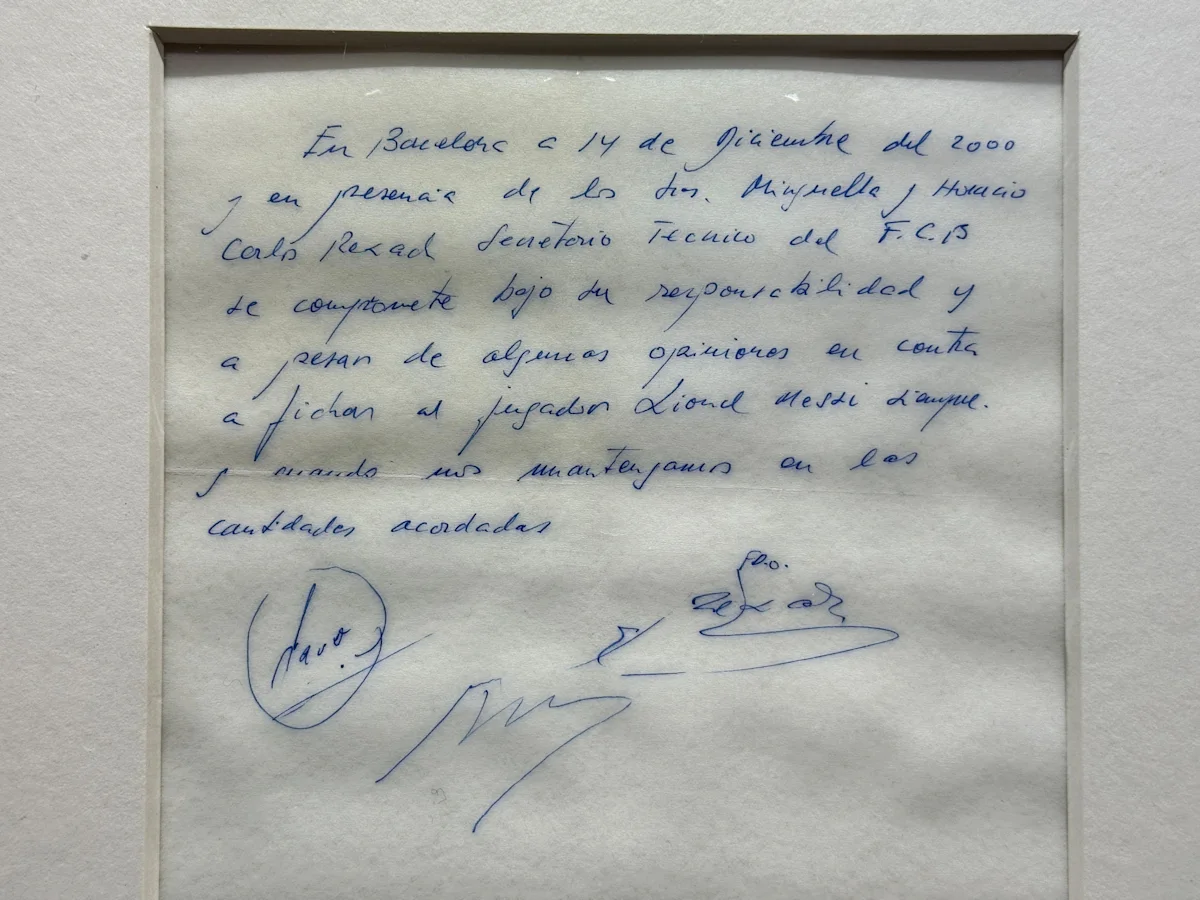 En Barcelona a 14 de Diciembre del 2000
y en presencia de los Srs. Minguella y Horacio
Carlos Rexach Secretario Tecnico del F.C.B
se compromete bajo su responsabilidad y
a pesar de algunas opiniones en contra
a fichar al jugador Lionel Messi siempre.
y cuando nos mantengamos en las
cantidades acordadas